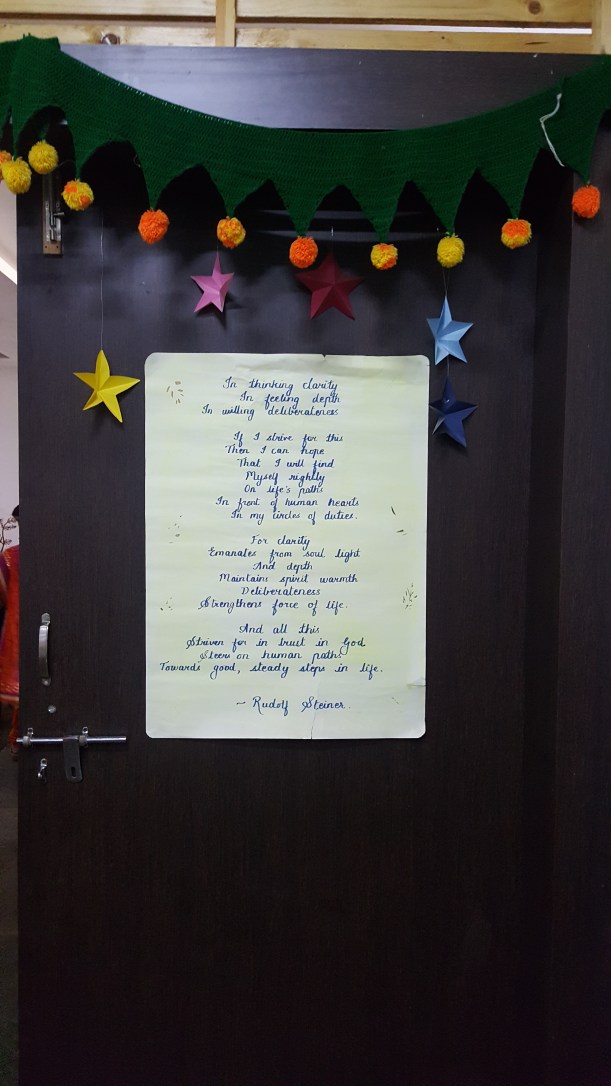 In thinking clarity
In feeling depth
In willing deliberateness
If I strive for this
Then I can hope
That I will find
Myself rightly
On life's paths
In front of human hearts
In my circles of duties.
For clarity
Emanates from soul light
And depth
Maintains spirit warmth
Deliberateness
Strengthens force of life.
And all this
Striven for in trust in God
Steers on human paths
Towards good, steady steps in life.
~ Rudolf Steiner.